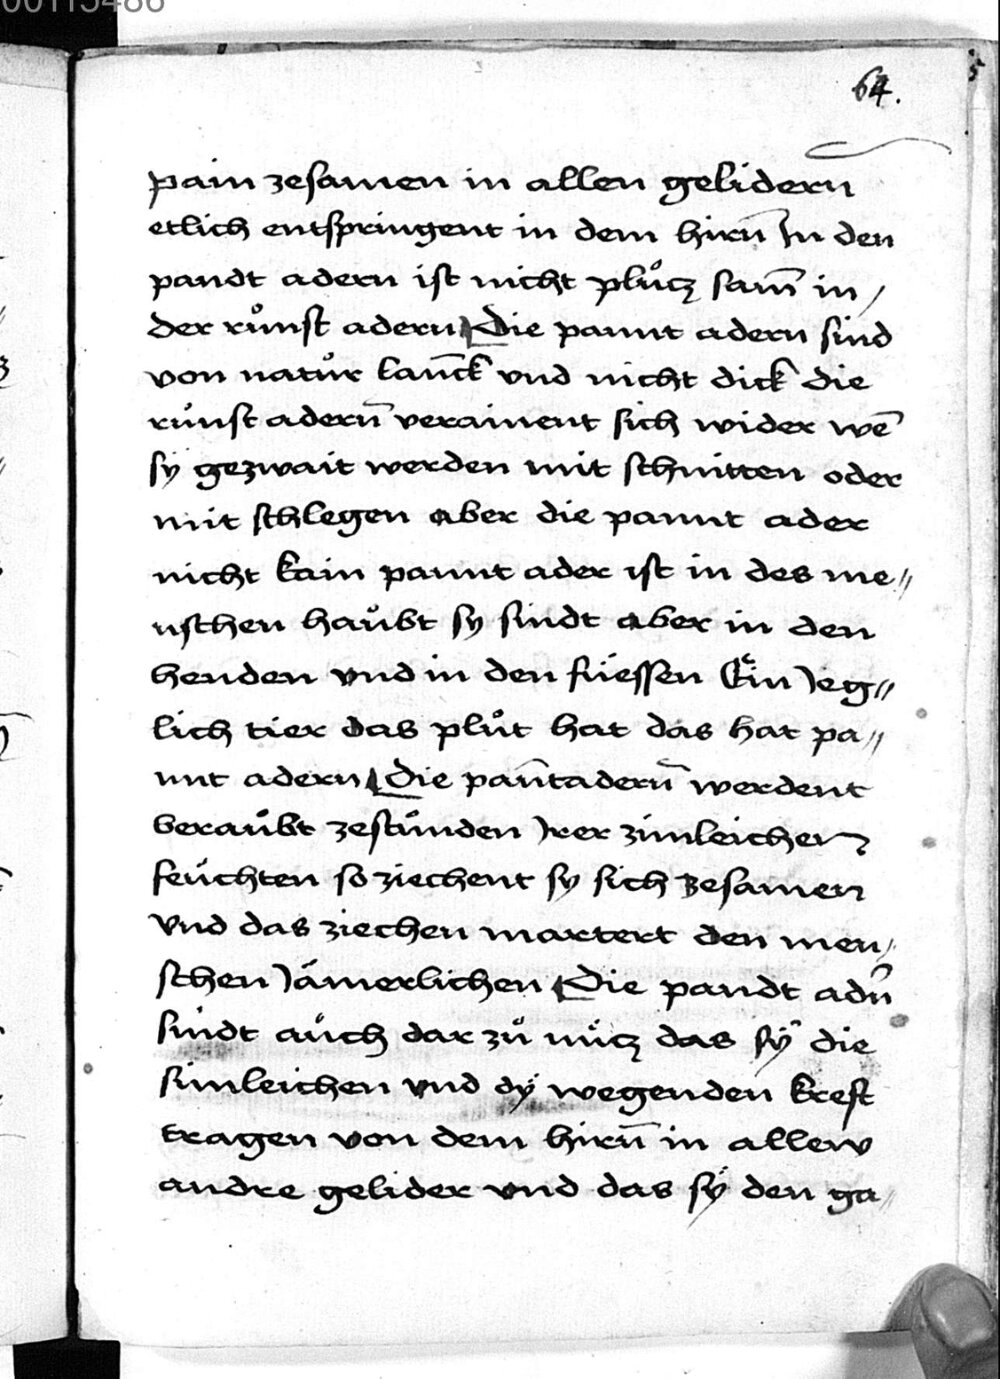 00115486
64.
pain zesamen in allen gelidern
etlich entspringent in dem hirn̄ In den
pandt adern ist nicht plůcz sam̄ in /
der růnst adern Die pannt adern sind
von natůr lan̄ck vnd nicht dick die
růnst adern̄ verainent sich wider wē
sÿ gezwait werden mit schnitten oder
mit schlegen aber die pannt ader
nicht kain pannt ader ist in des me〃
nschen haůbt sy sindt aber in den
henden vnd in den fůessen Ein Jeg〃
lich tier das plůt hat das hat pa〃
nnt adern Die pan̄tadern̄ werdent
beraůbt zestůnden Jrer zimleichen
feůchten so ziechent sy sich zesamen
vnd das ziechen martert den men /
schen Jämerlichen Die pandt adn̄
sindt aůch dar zů nůcz das sÿ die
sinleichen vnd dÿ wegenden krefft
tragen von dem hirn̄ in allew
andre gelider vnd das sÿ den ga〃